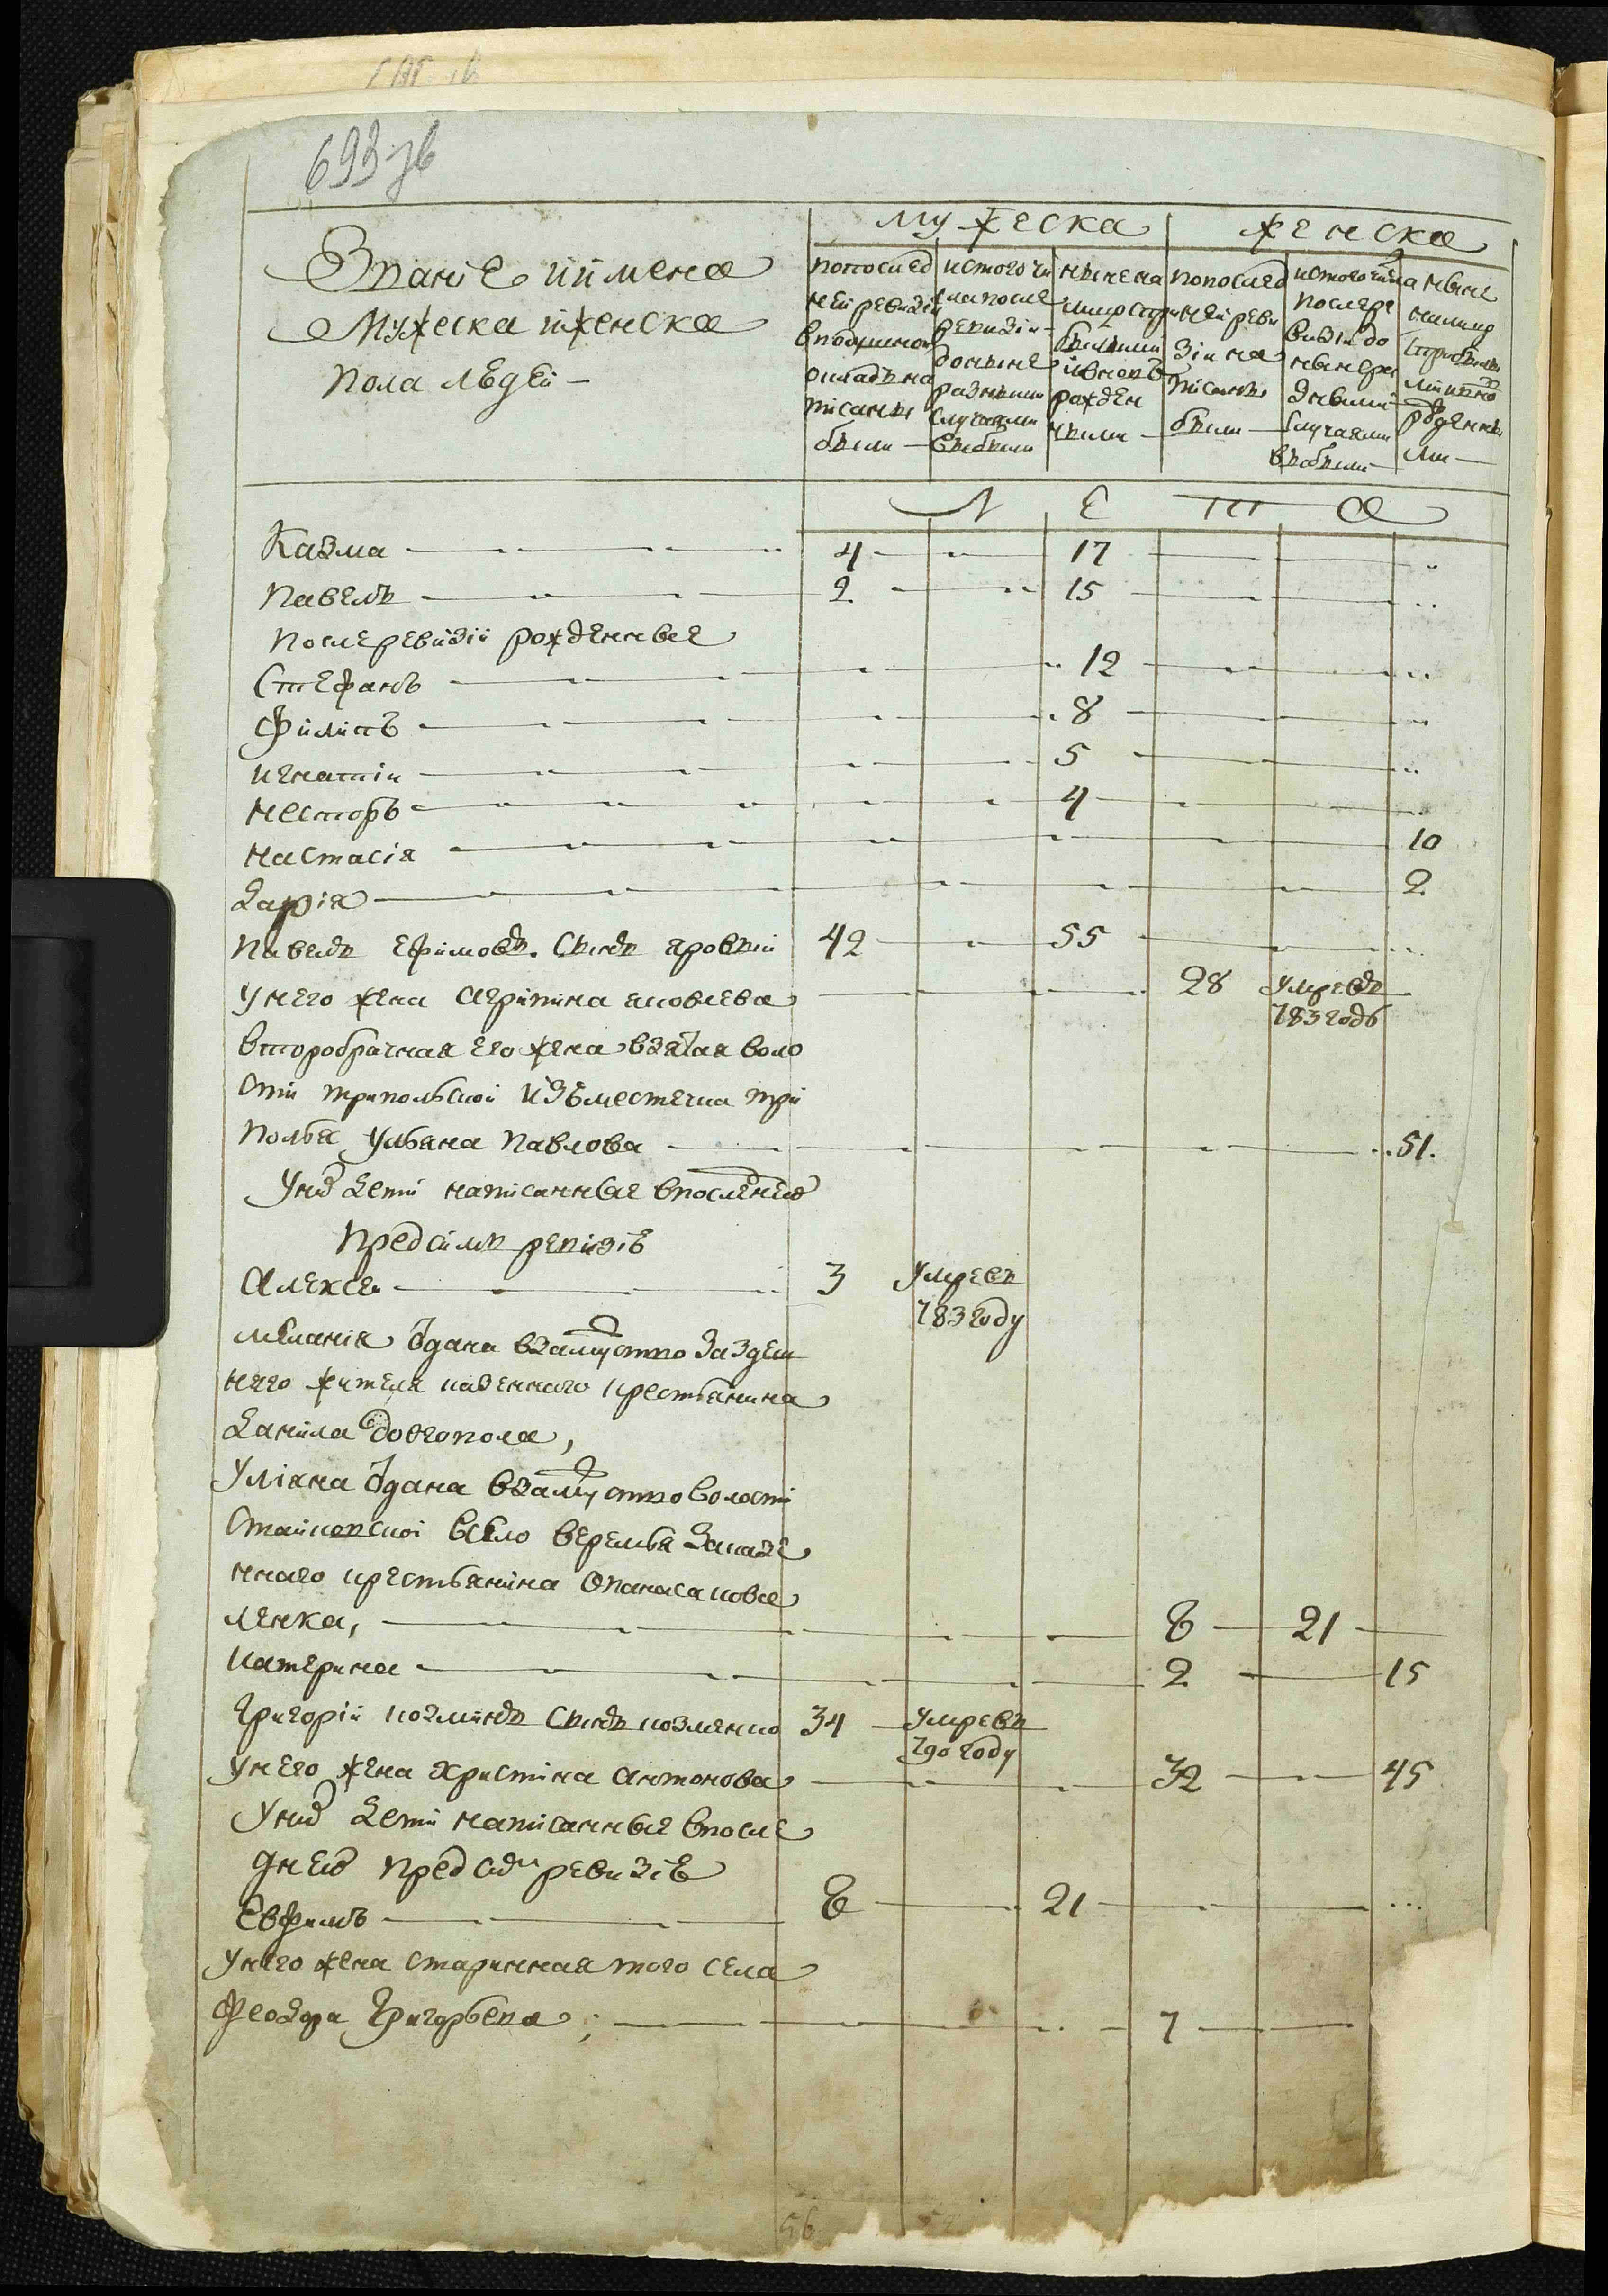 693 зв
Звание и имена
Мужеска и женска
пола людей —
мужеска
женска
по последней ревизии в подушном окладе написаны были —
из того числа после ревизии до ныне разными случаями выбыли
ныне на лицо с прибылыми и вновь рожденными —
по последней ревизии написаны были —
из того числа после ревизии до ныне разными случаями выбыли —
ныне на лицо с прибылыми и вновь рожденными —
Л Е Т А
Казма — 4 — 17 — ..
Павелъ — 2 — 15 — ..
После ревизии рожденные
Стефанъ — 12 — ..
Филипъ — 8 — ..
Игнатий — 5 — ..
Несторъ — 4 — ..
Настасия — 10
Дария — 2
Павелъ Ефимовъ. сынъ яровый 42 — 55 — ..
У него жена Агрипина яковлева — 28 умре въ 783 годъ
второбрачная его жена взятая воло
сти трипольской изъ местечка три
полья Ульяна Павлова — .. 51.
У них дети написанные в последней
пред сим ревизіе
Алексей — 3 умре въ 783 году
мелания отдана в замужство за здеш
него жителя казенного крестьянина
Данила довгопола,
Улияна отдана в замужство волости
Стайковской в село веремья за казе
нного крестьянина Опанаса кова
ленка, — 8 — 21 —
Катерина — 2 — 15
Григорий козминъ сынъ козменко 34 — умре въ 790 году
У него жена христина антонова — 32 — 45
У них дети написанные в после
дней пред сим ревизіе
Евфимъ — 8 — 21 — ...
У него жена старинная того села
Феодора Григорьева; — 7 —
56